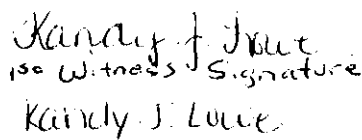 Kandy J Lowe
1st Witness Signature
Kandy J. Lowe